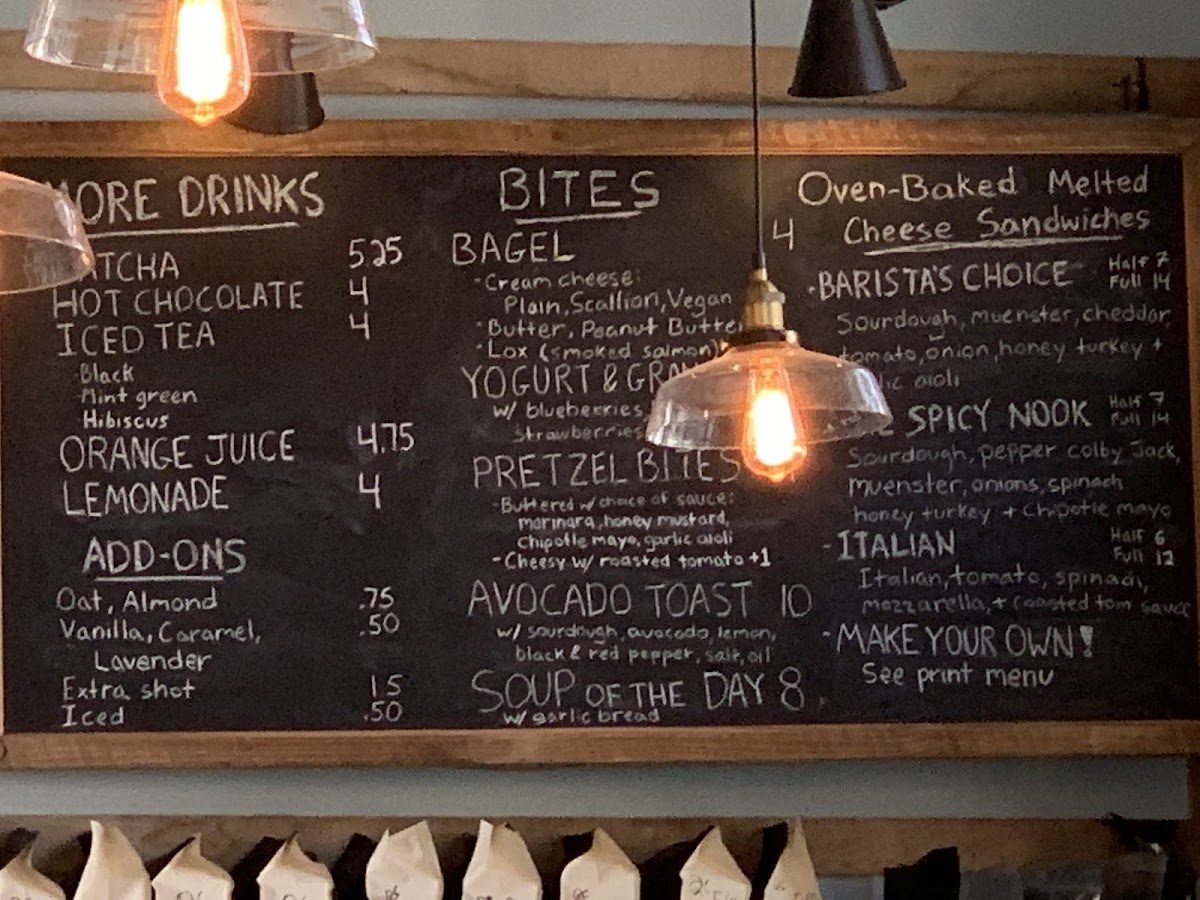 MORE DRINKS
MATCHA 5.25
HOT CHOCOLATE 4
ICED TEA 4
-Black
-Mint green
Hibiscus
ORANGE JUICE 4.75
LEMONADE 4
ADD-ONS
Oat, Almond .75
Vanilla, Caramel, .50
Lavender
Extra shot 1.5
Iced .50
BITES
BAGEL 4
-Cream cheese:
Plain, Scallion, Vegan
-Butter, Peanut Butter
-Lox (smoked salmon)
YOGURT &
w/ blueberries,
strawberries
PRETZEL BITES
-Buttered w/ choice of sauce:
marinara, honey mustard,
chipotle mayo, garlic aioli
-Cheesy w/ roasted tomato +1
AVOCADO TOAST 10
w/ sourdough, avocado, lemon,
black & red pepper, salt, oil
SOUP OF THE DAY 8
w/ garlic bread
Oven-Baked Melted
Cheese Sandwiches
-BARISTA'S CHOICE Half 7
Full 14
Sourdough, muenster, cheddar,
tomato, onion, honey turkey +
aioli
SPICY NOOK Half 7
Full 14
Sourdough, pepper colby Jack,
muenster, onions, spinach
honey turkey + Chipotle mayo
-ITALIAN Half 6
Full 12
Italian, tomato, spinach,
mozzarella, + roasted tom sauce
-MAKE YOUR OWN!
See print menu